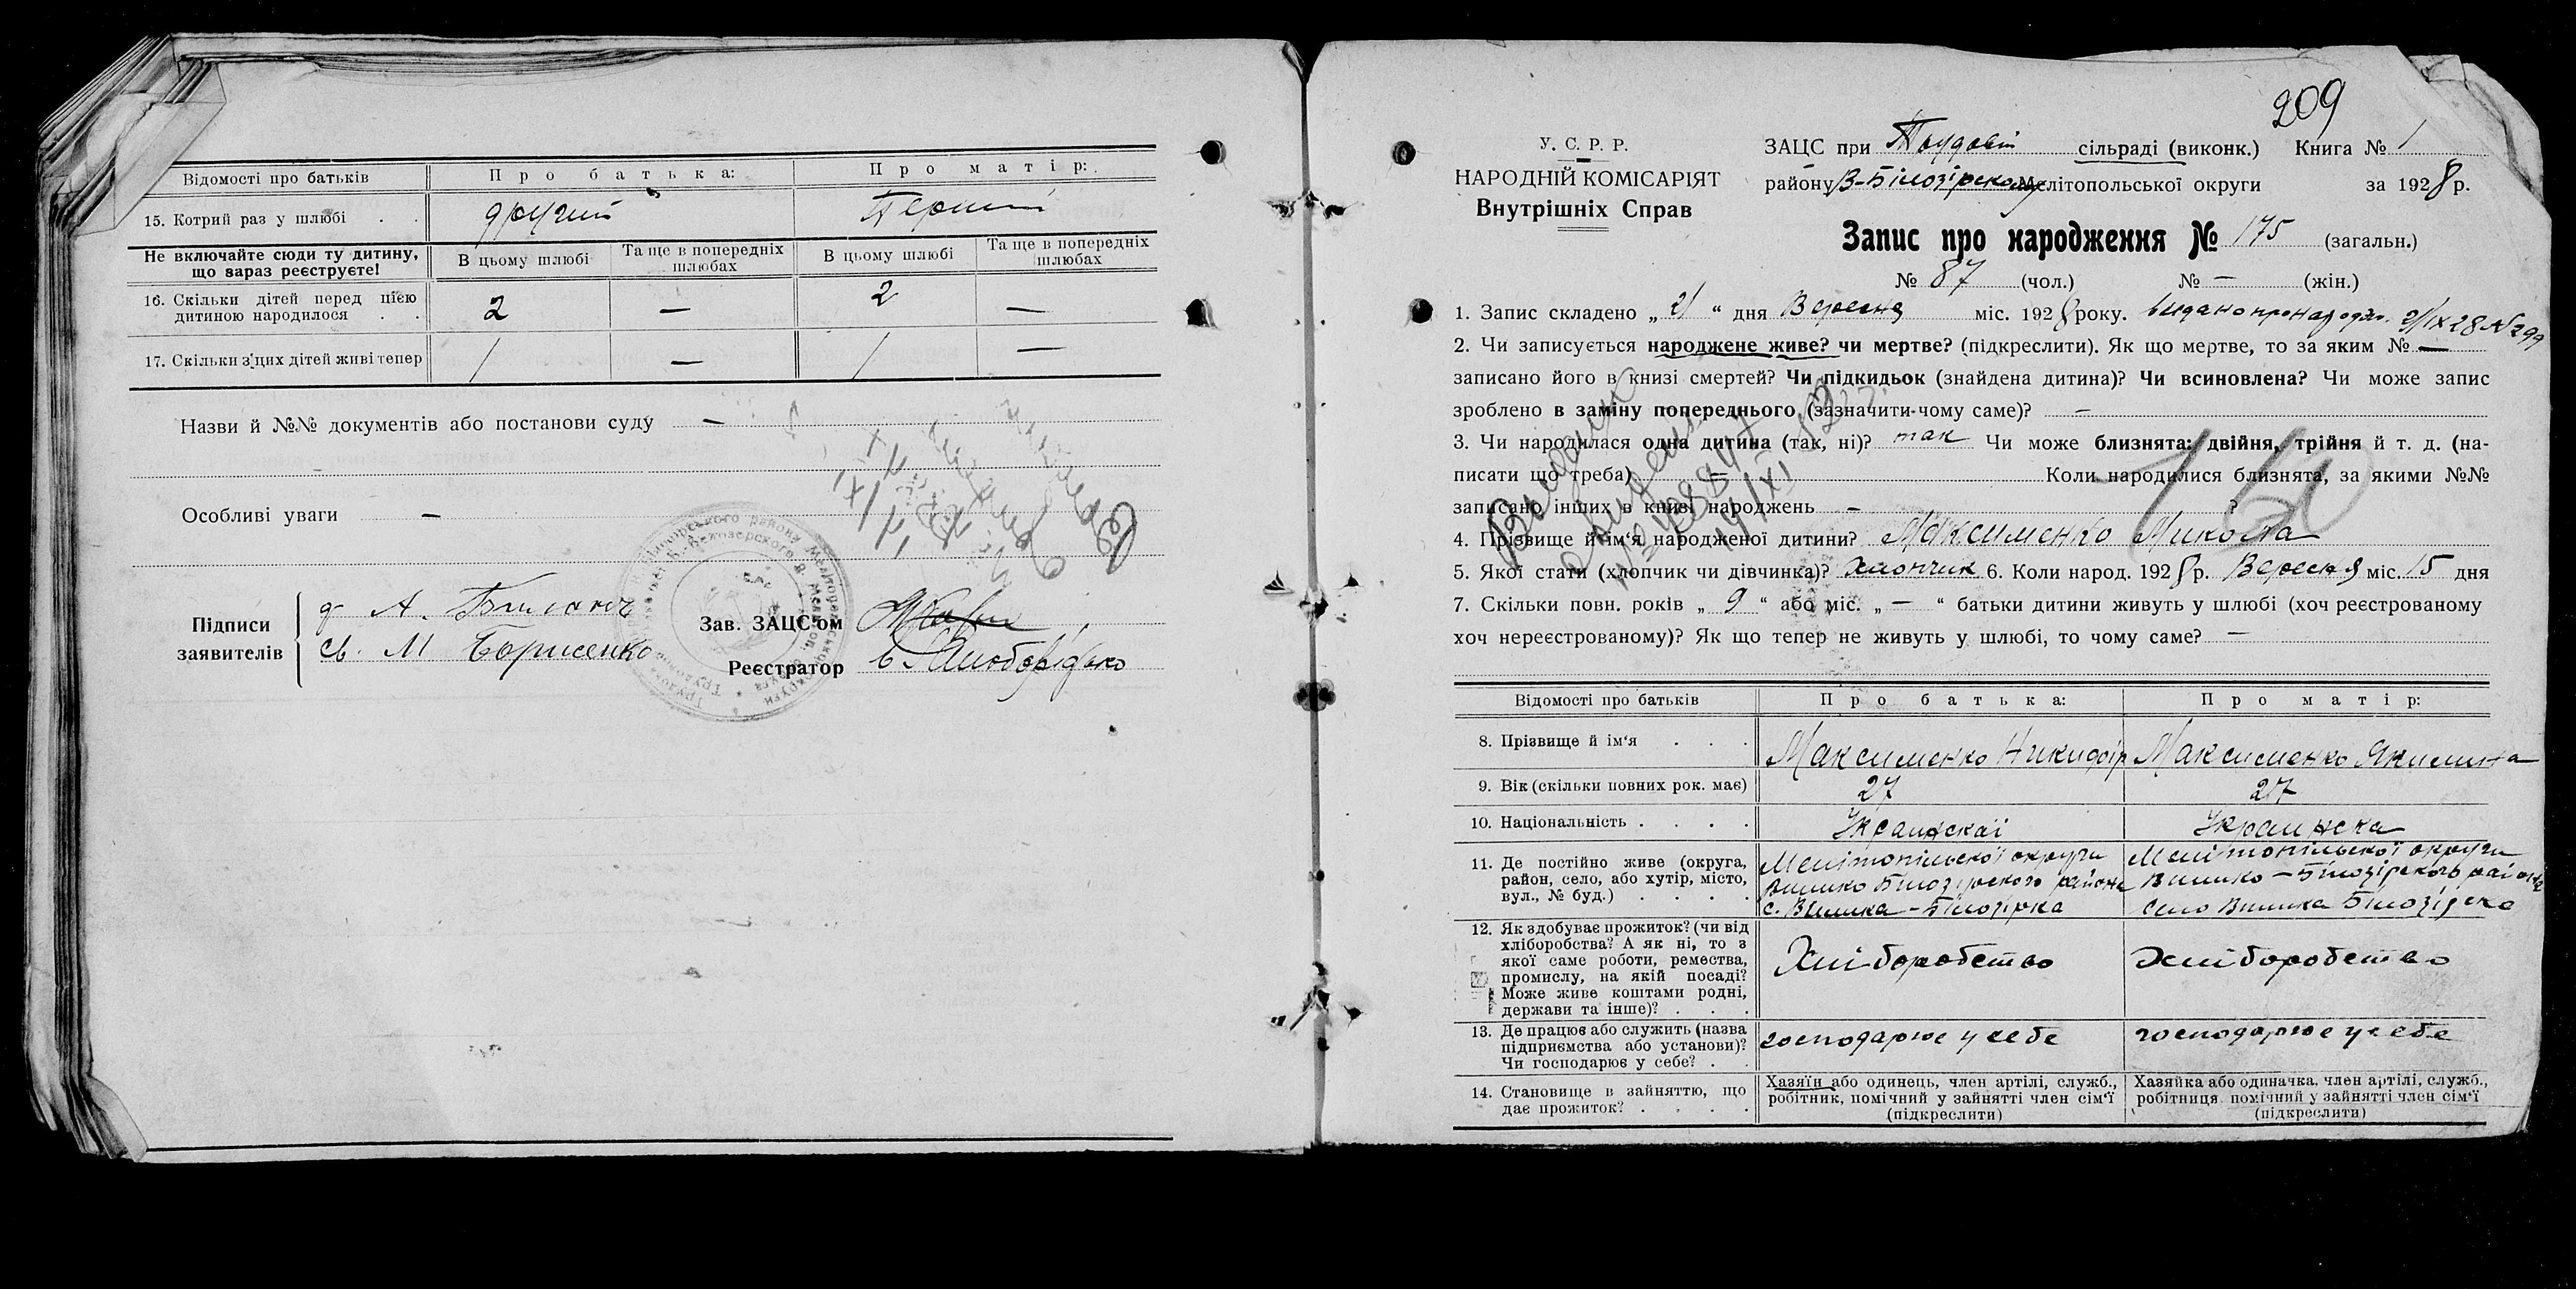 Відомості про батьків Про батька: Про матір:
15. Котрий раз у шлюбі другий Перший
Не включайте сюди ту дитину, що зараз реєструєте! В цьому шлюбі Та ще в попередніх шлюбах В цьому шлюбі Та ще в попередніх шлюбах
16. Скільки дітей перед цією дитиною народилося 2 — 2 —
17. Скільки з цих дітей живі тепер 1 — 1 —
Назви й №№ документів або постанови суду —
Особливі уваги —
Підписи заявителів
А.
св. М Борисенко
Зав. ЗАЦС'ом
Реєстратор
209
У. С. Р. Р.
НАРОДНІЙ КОМІСАРІЯТ
Внутрішніх Справ
ЗАЦС при Трудовій сільраді (виконк.) Книга № 1
району В-Білозірском Мелітопольської округи за 1928 р.
Запис про народження № 175 (загальн.)
№ 87 (чол.) № — (жін.)
1. Запис складено „ 21 “ дня Вересня міс. 1928 року. видано про народж. 21/IX 28 № 299
2. Чи записується народжене живе? чи мертве? (підкреслити). Як що мертве, то за яким № —
записано його в книзі смертей? Чи підкидьок (знайдена дитина)? Чи всиновлена? Чи може запис
зроблено в заміну попереднього (зазначити чому саме)? —
3. Чи народилася одна дитина (так, ні)? так Чи може близнята: двійня, трійня й т. д. (на-
писати що треба) — Коли народилися близнята, за якими №№
записано інших в книзі народжень — ?
4. Прізвище й ім'я народженої дитини? Максименко Микола
5. Якої стати (хлопчик чи дівчинка)? Хлопчик 6. Коли народ. 1928 р. Вересня міс. 15 дня
7. Скільки повн. років „ 9 “ або міс. „ — “ батьки дитини живуть у шлюбі (хоч реєстрованому
хоч нереєстрованому)? Як що тепер не живуть у шлюбі, то чому саме? —
Відомості про батьків Про батька: Про матір:
8. Прізвище й ім'я Максименко Никифір Максименко Якилина
9. Вік (скільки повних рок. має) 27 27
10. Національність Украинскаї Украинска
11. Де постійно живе (округа, район, село, або хутір, місто, вул., № буд.)
Мелітопільскої округи Велико Білозірского района с. Велика-Білозірка
Мелітопільскої округи Велико-Білозірского района село Велика Білозірка
12. Як здобуває прожиток? (чи від хліборобства? А як ні, то з якої саме роботи, ремества, промислу, на якій посаді? Може живе коштами родні, держави та інше)?
Хліборобство Хліборобство
13. Де працює або служить (назва підприємства або установи)? Чи господарює у себе?
господарює у себе господарює у себе
14. Становище в зайняттю, що дає прожиток?
Хазяїн або одинець, член артілі, служб., робітник, помічний у зайнятті член сім'ї (підкреслити)
Хазяйка або одиначка, член артілі, служб., робітниця помічний у зайнятті член сім'ї (підкреслити)